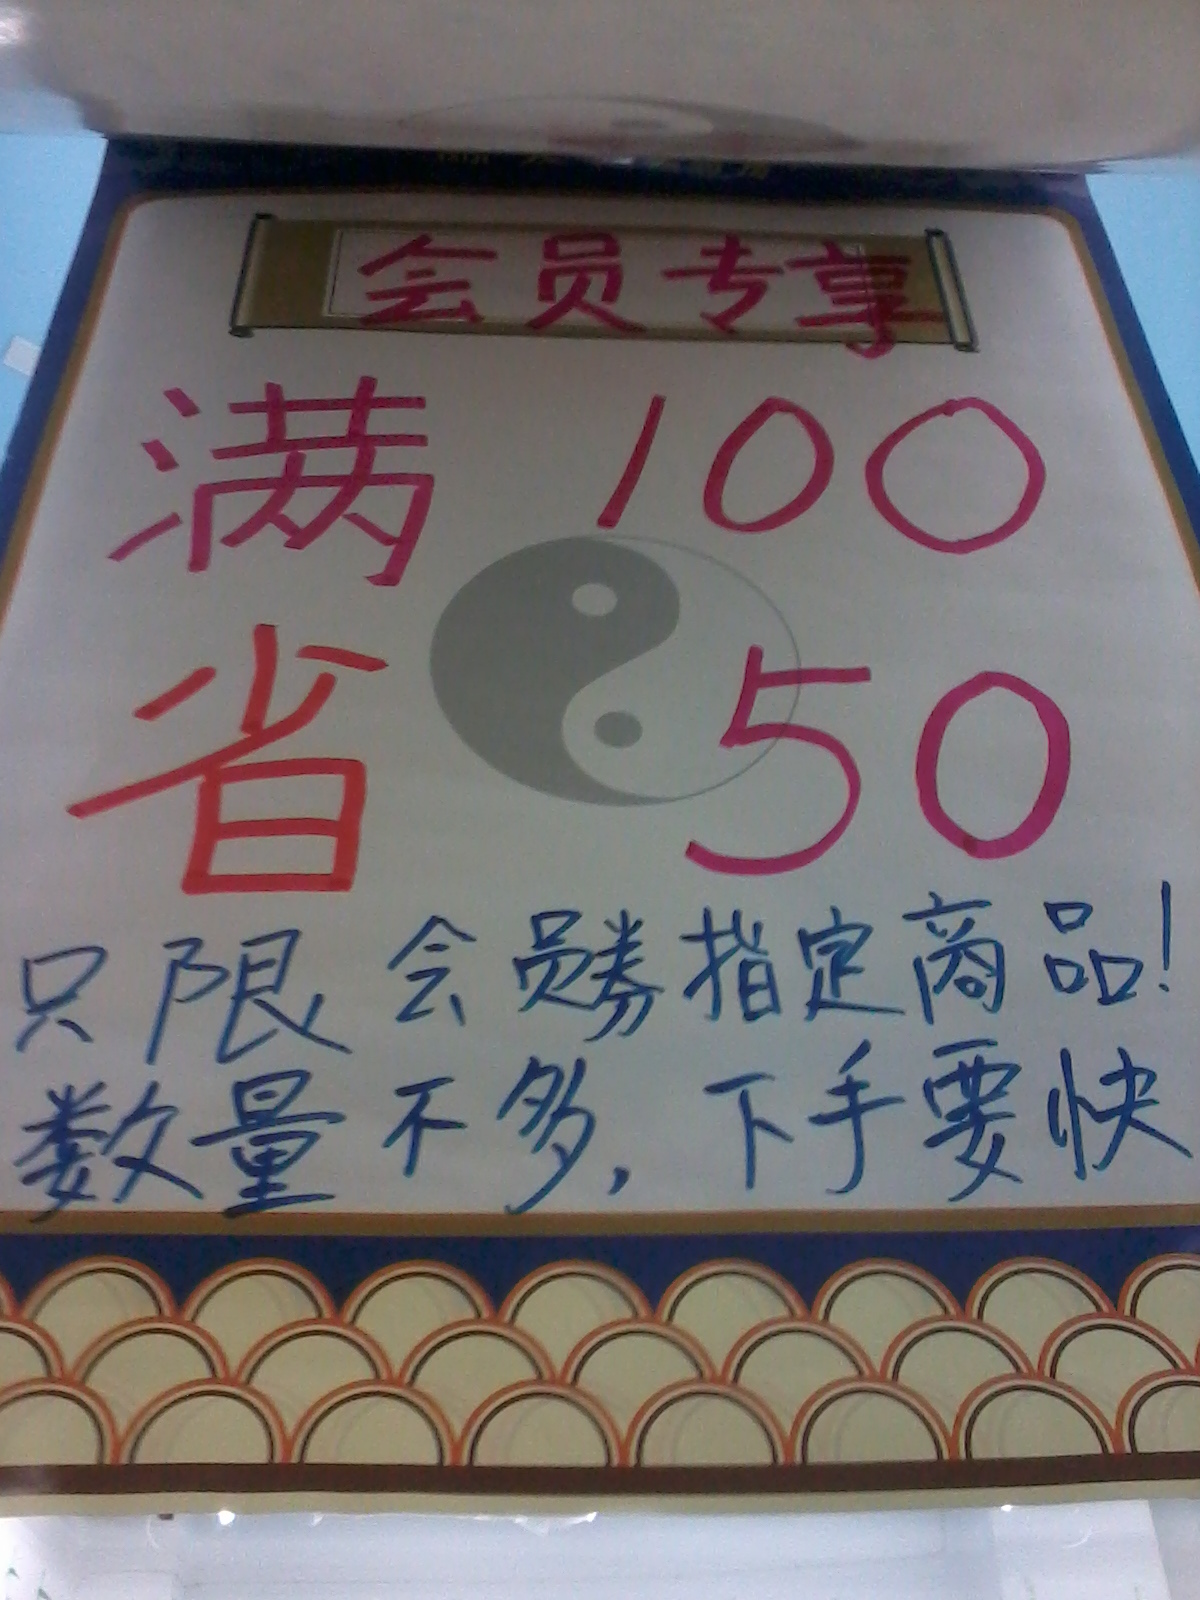 会员专享
满 100
省 50
只限 会员券指定商品!
数量不多, 下手要快